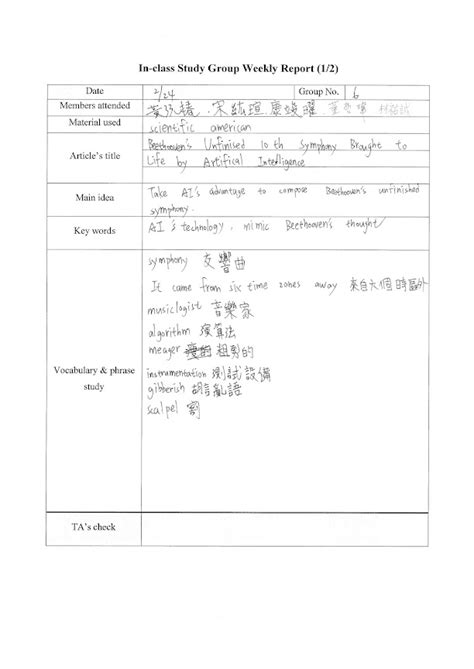 In-class Study Group Weekly Report (1/2)
Date 2/24 Group No. 6
Members attended
Material used scientific american
Article's title Beethoven's Unfinised 10 th Symphony Brought to
Life by Artifical Intelligence
Main idea Take AI's advantage to compose Beethooven's unfinished
symphony.
Key words AI's technology, mimic Beethooven's thought
Vocabulary & phrase study
symphony 交響曲
It came from six time zones away 來自六個時區外
musiclogist 音樂家
algorithm 演算法
meager 粗到的
instrumentation 測試設備
gibberish 胡言亂語
scalpel 割
TA's check